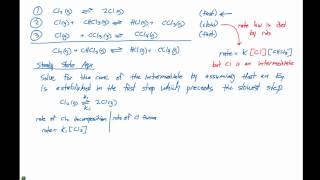 ① Cl₂(g) ⇌ 2Cl(g) (fast)
② Cl(g) + CHCl₃(g) ⇌ HCl(g) + CCl₃(g) (slow) rate law is det by rds
③ Cl(g) + CCl₃(g) ⇌ CCl₄(g) (fast)
Cl₂(g) + CHCl₃(g) ⇌ HCl(g) + CCl₄(g) rate = k [Cl][CHCl₃]
but Cl is an intermediate
Steady State
Solve for the conc of the intermediate by assuming that an Eq
is established in the first step which precedes the slowest step
Cl₂(g) ⇌ 2Cl(g)
rate of Cl₂ decomposition rate of Cl
rate = k₁[Cl₂]